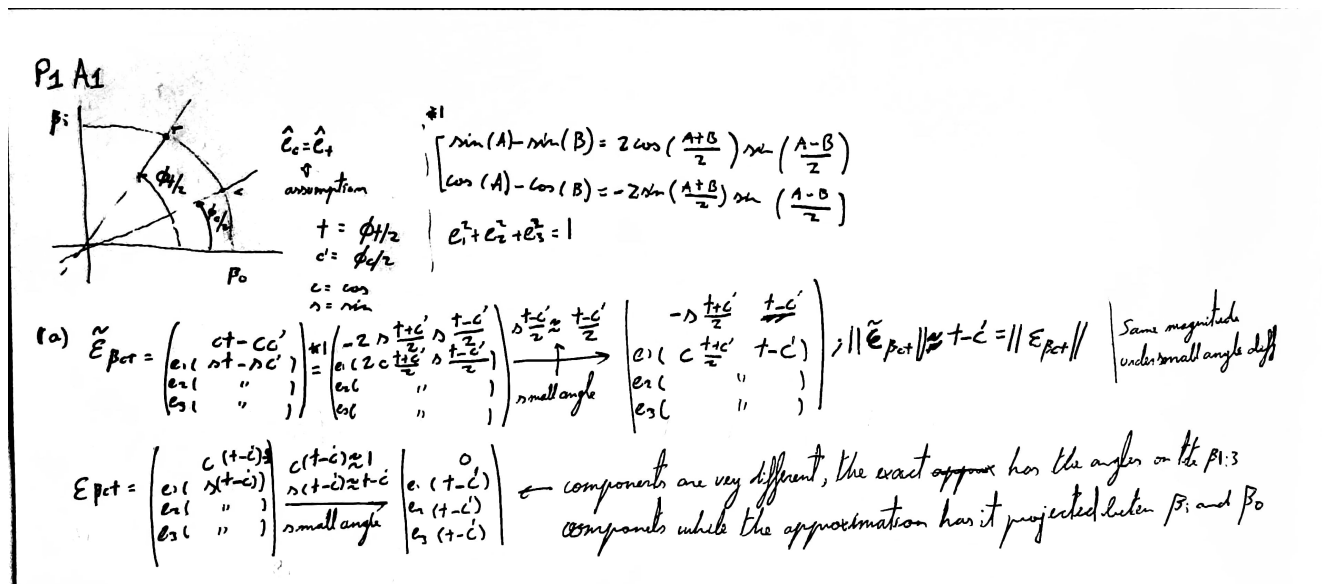 P1 A1
βi
t
ϕt/2
c
ϕc/2
β0
ê_c = ê_t
⇑
assumption
t = ϕt/2
c' = ϕc/2
c = cos
s = sin
*1
sin(A) - sin(B) = 2 cos((A+B)/2) sin((A-B)/2)
cos(A) - cos(B) = -2 sin((A+B)/2) sin((A-B)/2)
e₁² + e₂² + e₃² = 1
(a) ε̃_βct = ( ct - cc' ; e₁( st - sc' ) ; e₂( " ) ; e₃( " ) ) *1 = ( -2 s (t+c')/2 s (t-c')/2 ; e₁( 2 c (t+c')/2 s (t-c')/2 ) ; e₂( " ) ; e₃( " ) ) s (t-c')/2 ≈ (t-c')/2 ↑ small angle → ( -s (t+c')/2 t-c' ; e₁( c (t+c')/2 t-c' ) ; e₂( " ) ; e₃( " ) ) ; ||ε̃_βct|| ≈ t-c' = ||ε_βct||
Same magnitude
under small angle diff
ε_βct = ( c(t-c') ; e₁( s(t-c') ) ; e₂( " ) ; e₃( " ) ) c(t-c') ≈ 1 s(t-c') ≈ t-c' small angle → ( 0 ; e₁(t-c') ; e₂(t-c') ; e₃(t-c') ) ← components are very different, the exact approx has the angles on the β1:3
components while the approximation has it projected between βi and β0